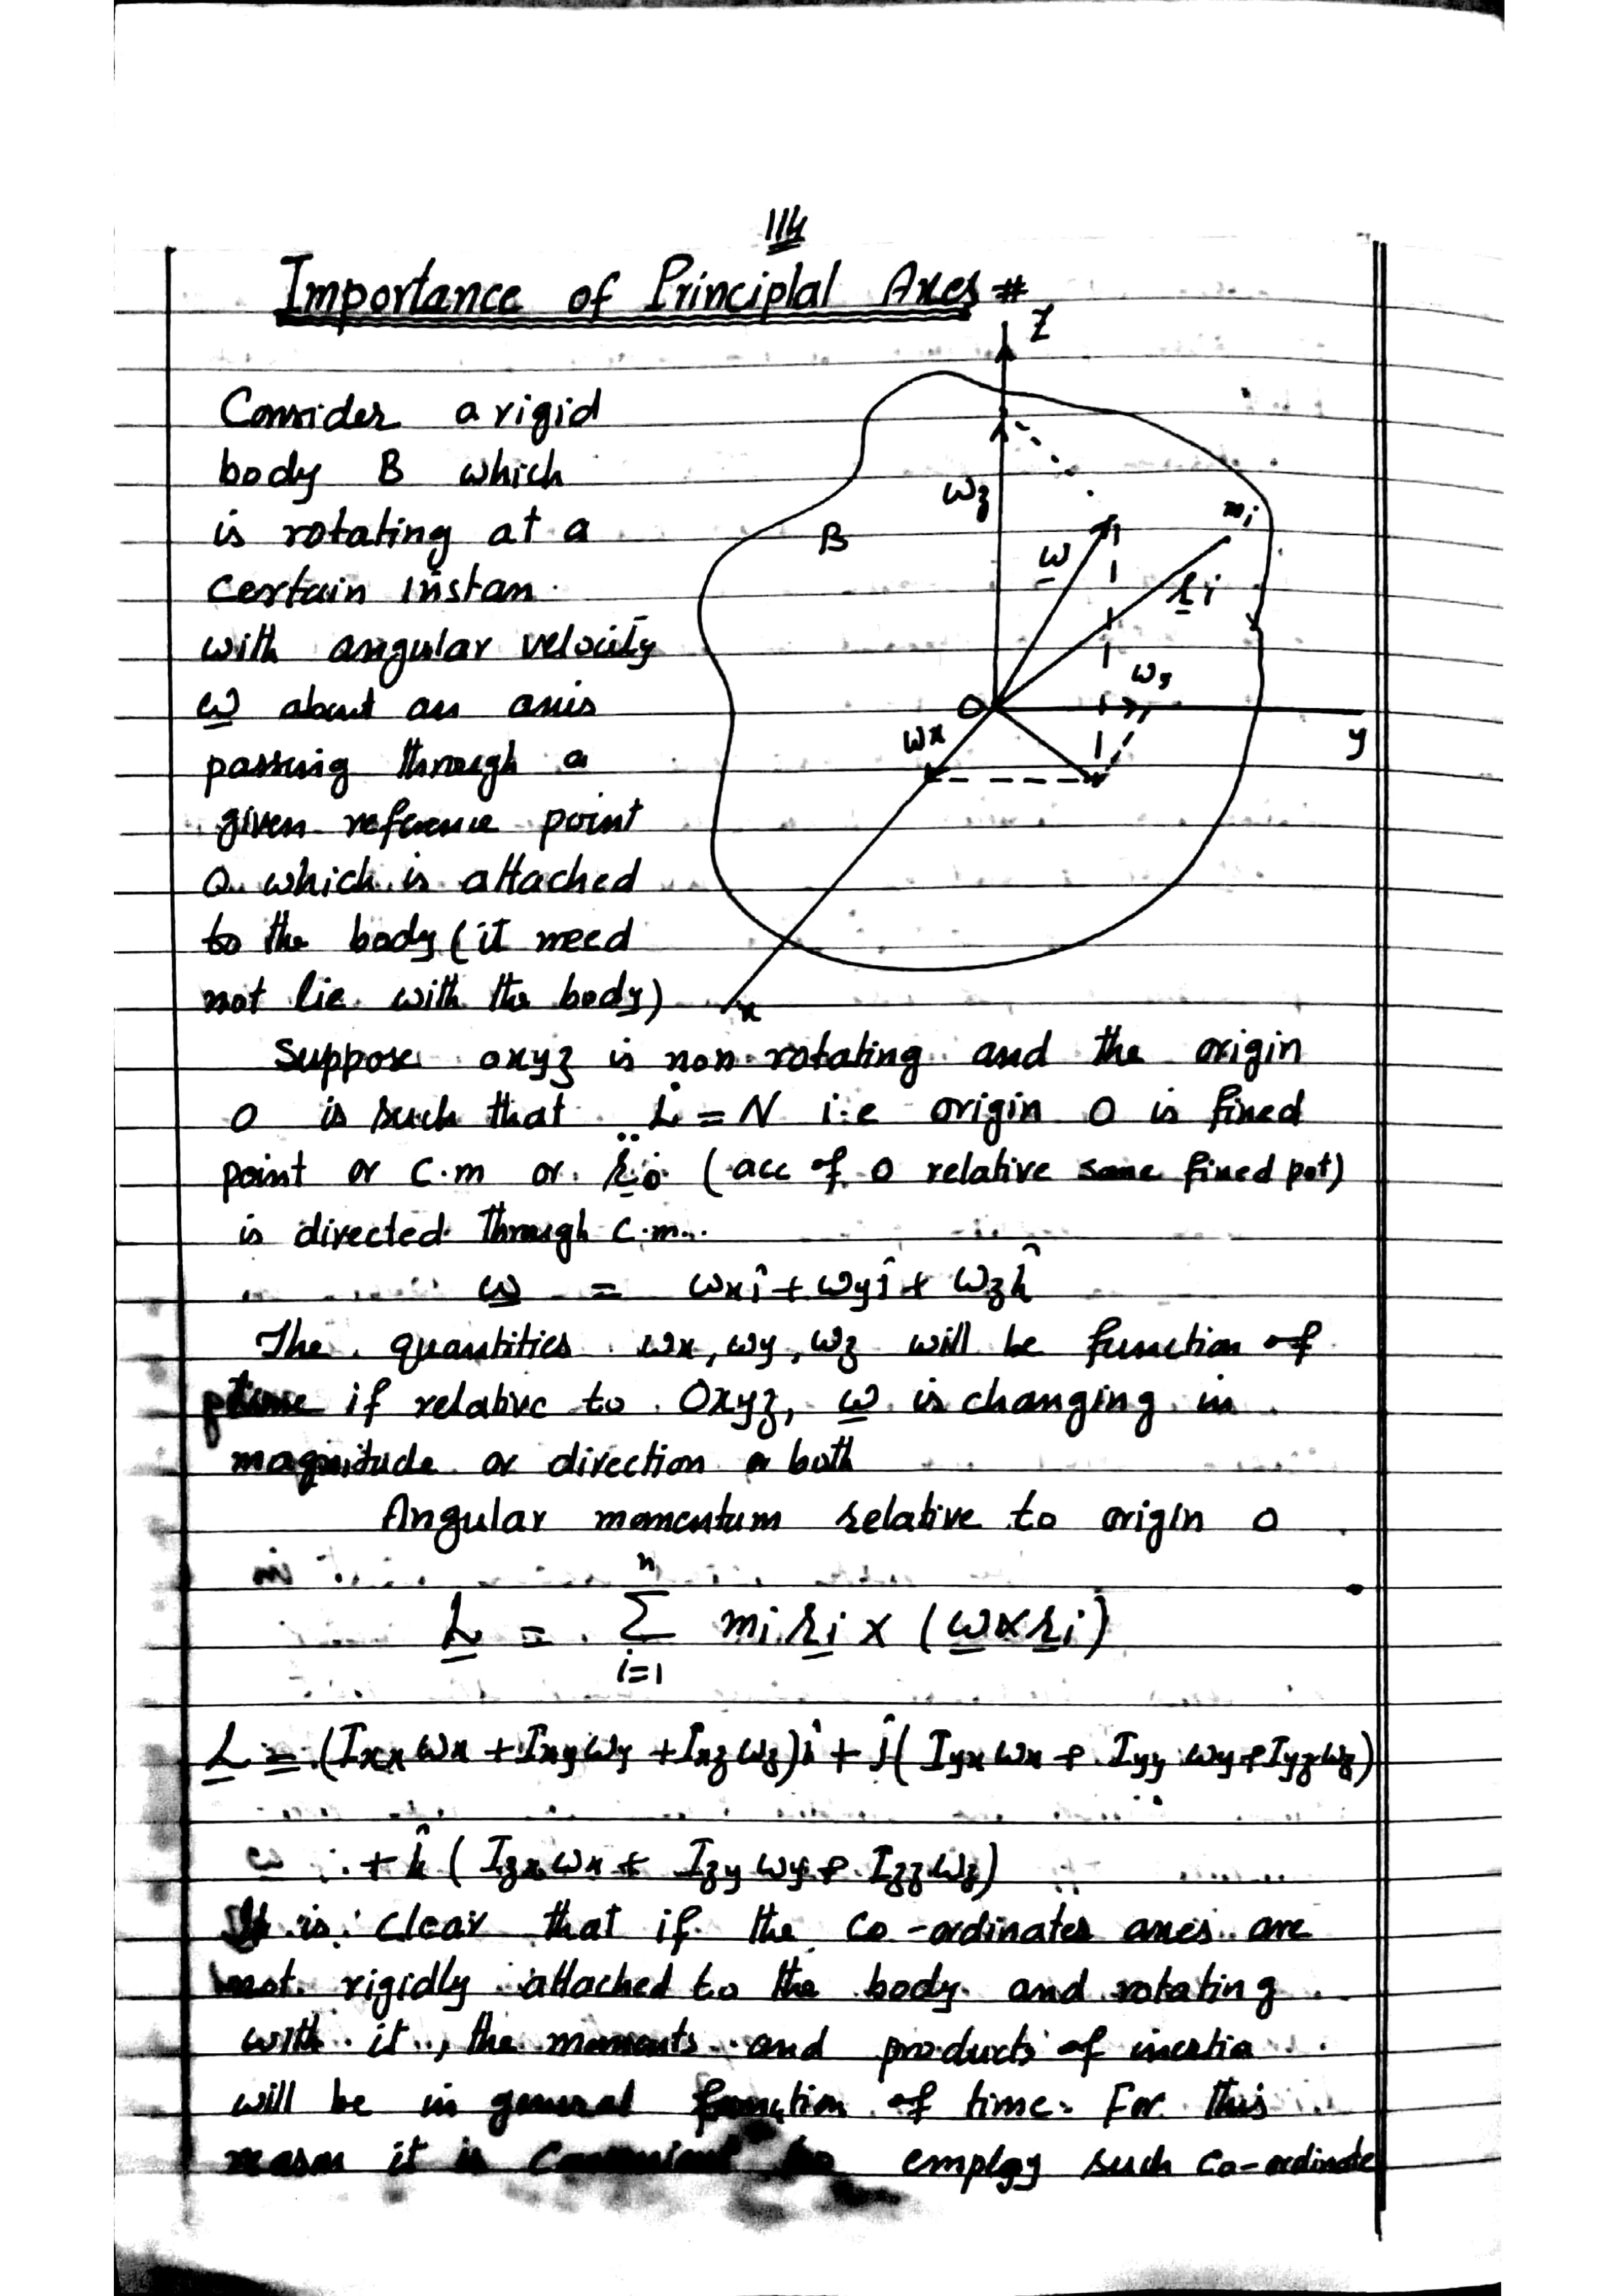 114
Importance of Principlal Axes #
Z
Consider a rigid
body B which
is rotating at a
certain instan
with angular velocity
ω about an axis
passing through a
given reference point
O which is attached
to the body (it need
not lie with the body)
B
ωz
ω
mi
ri
ωy
O
ωx
y
x
Suppose oxyz is non rotating and the origin
O is such that L̇ = N i.e origin O is fixed
point or C.m or r̈o (acc of O relative some fixed pot)
is directed through C.m.
ω = ωxî + ωyĵ + ωzk̂
The quantities ωx, ωy, ωz will be function of
time if relative to Oxyz, ω is changing in
magnitude or direction or both
Angular momentum relative to origin O
is
L = n∑i=1 mi ri × (ω×ri)
L = (Ixx ωx + Ixy ωy + Ixz ωz)î + ĵ( Iyx ωx + Iyy ωy + Iyz ωz)
+ k̂ ( Izx ωx + Izy ωy + Izz ωz)
It is clear that if the Co-ordinates axes are
not rigidly attached to the body and rotating
with it, the moments and products of inertia
will be in general function of time. For this
reason it is Convenient to employ such Co-ordinate